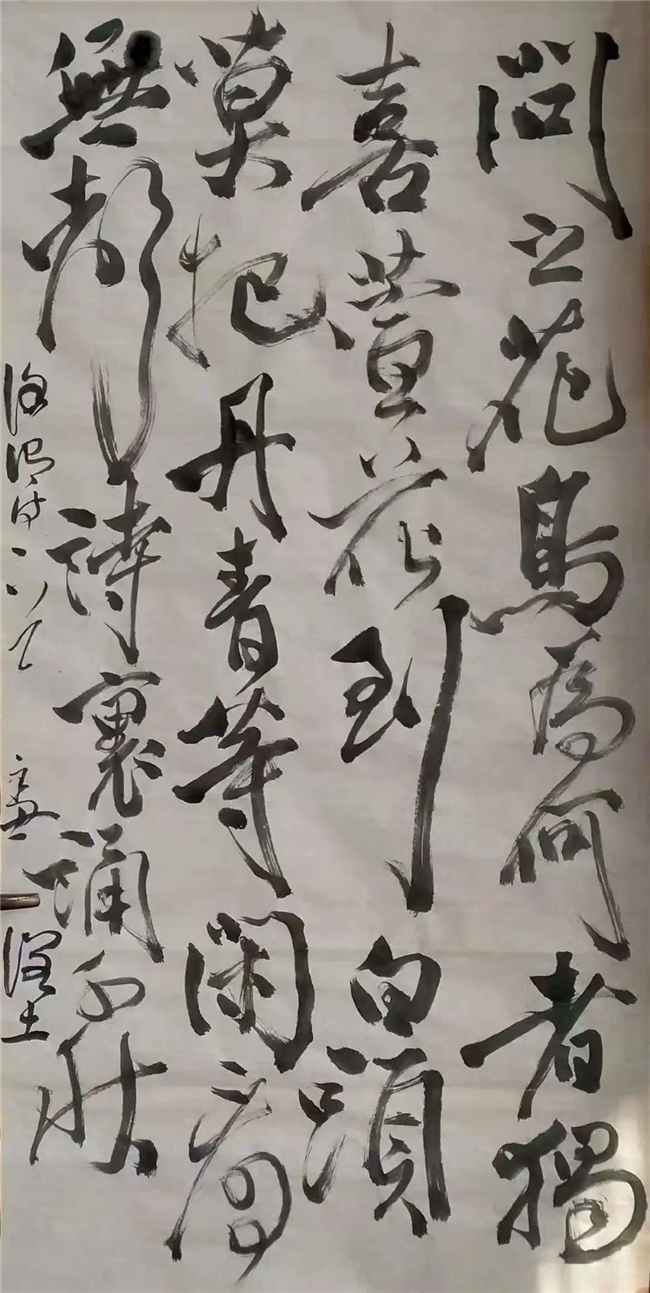 問之花鳥為何者獨
喜萱花到白頭
莫把丹青等閑看
無聲詩裏誦千秋
徐渭詩